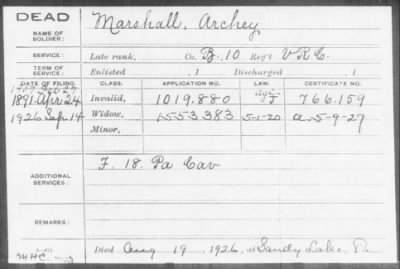 DEAD
NAME OF SOLDIER:
Marshall, Archey
SERVICE:
Late rank, Co. B, 10 Reg't V R C.
TERM OF SERVICE:
Enlisted , 1 Discharged , 1
DATE OF FILING. CLASS. APPLICATION NO. LAW. CERTIFICATE NO.
1891 Apr 24 Invalid, 1019.880 J 766.159
1926 Sep 14 Widow, 1553383 5-1-20 a-5-9-27
Minor,
ADDITIONAL SERVICES:
F. 18. Pa Cav
REMARKS:
Died Aug 19, 1926, at Sandy Lake, Pa
MHC